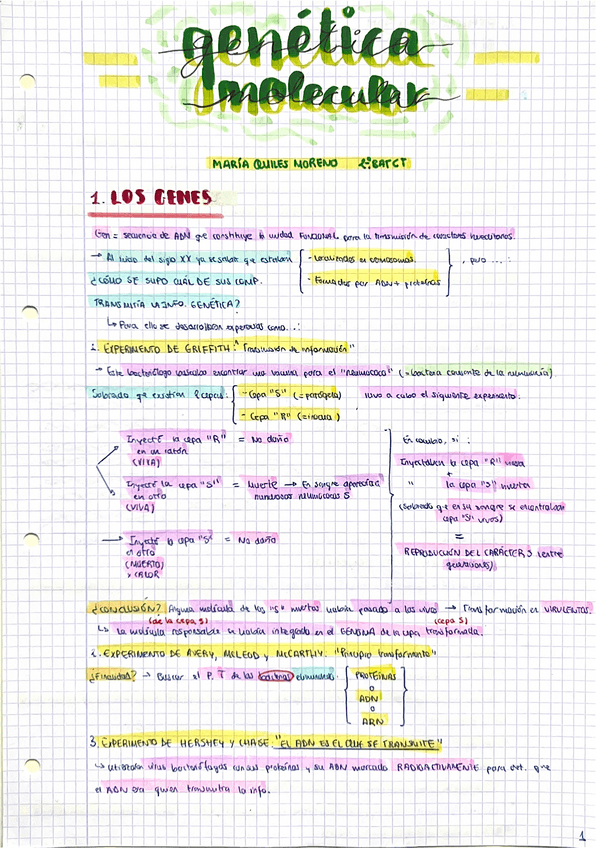 genética
molecular
MARÍA QUILES MORENO 2ºBATCT
1. LOS GENES
Gen = secuencia de ADN que constituye la unidad FUNCIONAL para la transmisión de caracteres hereditarios.
→ Al inicio del siglo XX ya se sabía que estaban
- Localizados en cromosomas.
- Formados por ADN + proteínas
, pero ...:
¿CÓMO SE SUPO CUÁL DE SUS COMP.
TRANSMITÍA LA INFO. GENÉTICA?
↳ Para ello se desarrollaron experiencias como...:
1. EXPERIMENTO DE GRIFFITH: "Transmisión de información"
→ Este bacteriólogo buscaba encontrar una vacuna para el "neumococo" (= bacteria causante de la neumonía).
Sabiendo que existían 2 cepas:
- Cepa "S" (= patógena)
- Cepa "R" (= inocua)
llevó a cabo el siguiente experimento:
Inyectó la cepa "R" = No daño
en un ratón
(VIVA)
Inyectó la cepa "S" = Muerte → En sangre aparecían
en otro numerosos neumococos S
(VIVA)
→ Inyectó la cepa "S" = No daño
en otro
(MUERTO)
x CALOR
En cambio, si:
Inyectaban la cepa "R" viva
+
" la cepa "S" muerta
(Sabiendo que en su sangre se encontraban
cepa "S" vivos)
=
REPRODUCCIÓN DEL CARÁCTER S (entre
generaciones)
¿CONCLUSIÓN? Alguna molécula de los "S" muertos habría pasado a los vivos → Transformación en VIRULENTOS.
(de la cepa S) (cepa S)
↳ La molécula responsable se habría integrado en el GENOMA de la cepa transformada.
2. EXPERIMENTO DE AVERY, MCLEOD y McCARTHY: "Principio transformante"
¿Finalidad? → Buscar el P. T de las bacterias eliminando:
PROTEÍNAS
o
ADN
o
ARN
3. EXPERIMENTO DE HERSHEY Y CHASE: "EL ADN ES EL QUE SE TRANSMITE"
↳ utilizaron virus bacteriófagos con sus proteínas y su ADN marcado RADIOACTIVAMENTE para det. que
el ADN era quien transmitía la info.
1